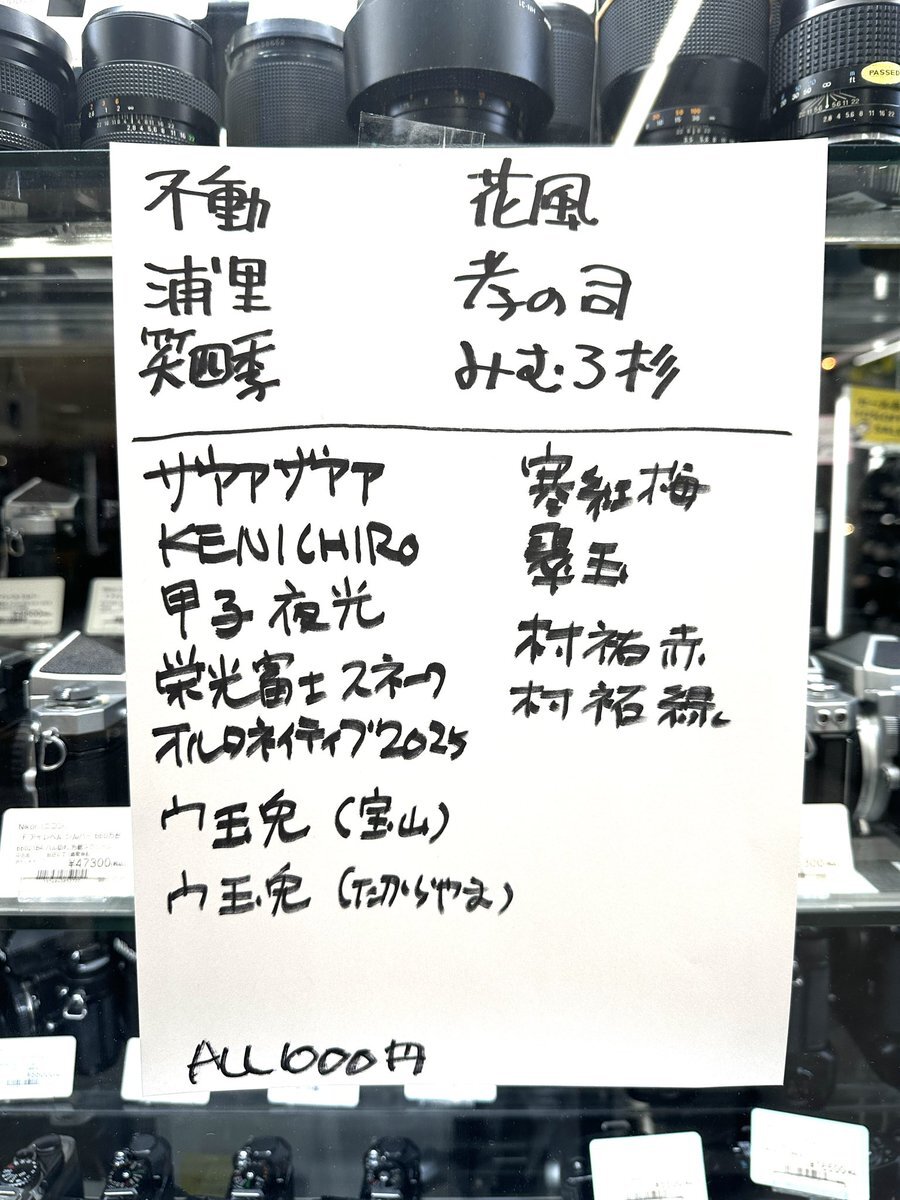 不動
浦里
笑四季
花風
孝の司
みむろ杉
ザヤァザヤァ
KENICHIRO
甲子 夜光
栄光冨士 スネーク
オルタネイティブ2025
ウ玉兎 (宝山)
ウ玉兎 (たからやま)
寒紅梅
翠玉
村祐 赤
村祐 緑
ALL 1000円
¥47300
PASSED